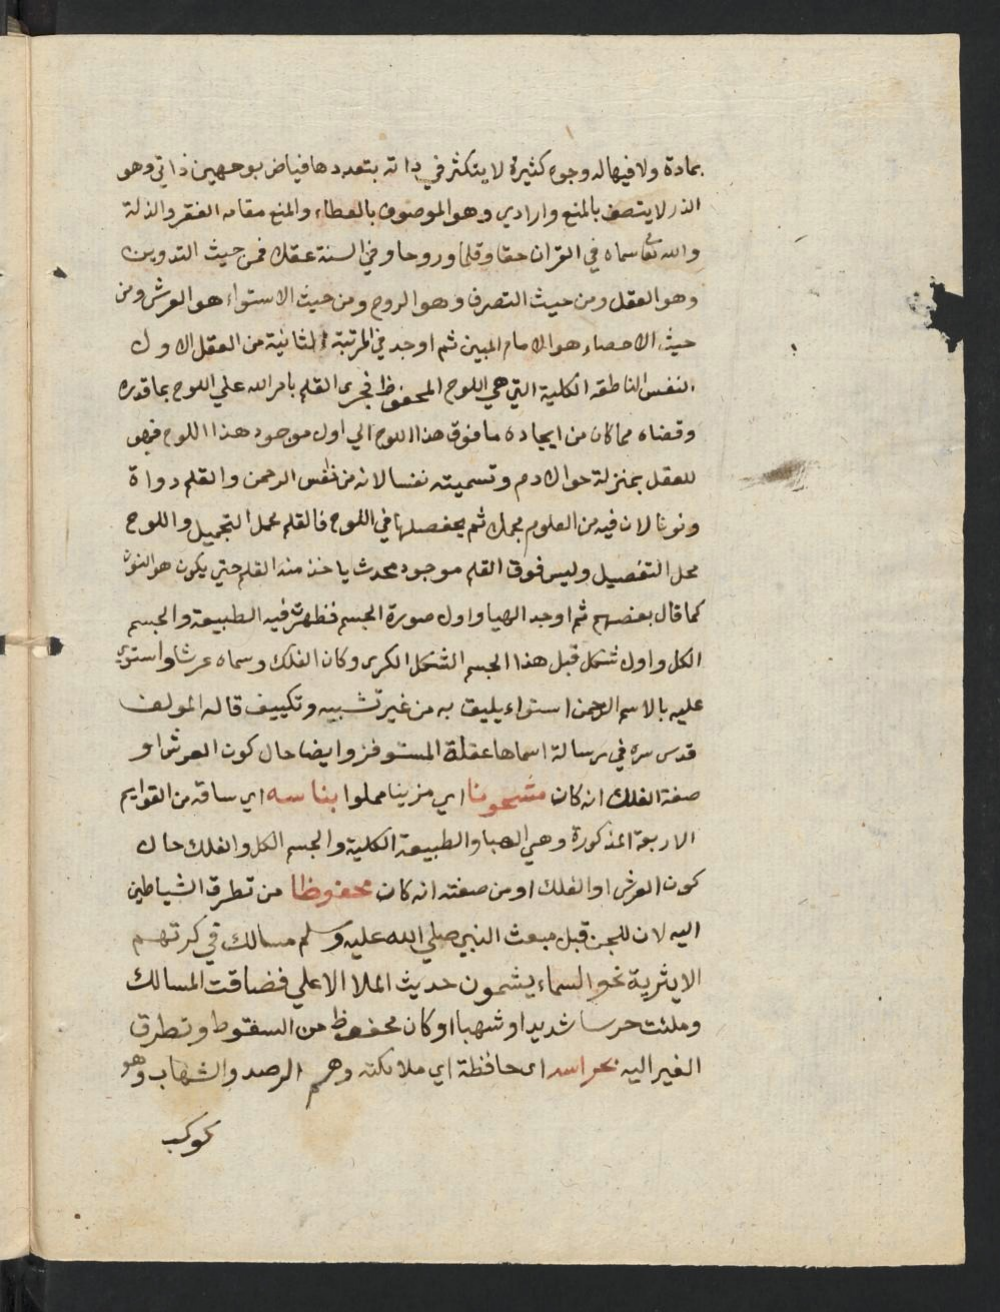 بمادة ولا فيها له وجوه كثيرة لا يتكثر في ذاته بتعددها فياض بوجهين ذاتي وهو
الذي لا يتصف بالمنع وارادي وهو الموصوف بالعطاء والمنع مقامه الفقر والذلة
والله تعا سماه في القران حقا وقلما وروحا وفي السنة عقلا فمن حيث التدوين
وهو العقل ومن حيث التصرف وهو الروح ومن حيث الاستواء هو العرش ومن
حيث الاحصاء هو الامام المبين ثم اوجد في المرتبة الثانية من العقل الاول
النفس الناطقه الكلية التي هي اللوح المحفوظ فجرى القلم بامر الله علي اللوح بما قدره
وقضاه مما كان من ايجاده ما فوق هذا اللوح الي اول موجود هذا اللوح فهو
للعقل بمنزلة حوا لادم وتسميته نفسا لانه من نفس الرحمن والقلم دواة
ونونا لان فيه من العلوم مجملا ثم يفصلها في اللوح فالقلم محل التجميل واللوح
محل التفصيل وليس فوق القلم موجود محدث ياخذ منه القلم حتي يكون هو النون
كما قال بعضهم ثم اوجد الهبا واول صورة الجسم فظهرت فيه الطبيعة والجسم
الكل واول شكل قبل هذا الجسم الشكل الكرى وكان الفلك وسماه عرشا واستوى
عليه بالاسم الرحمن استواء يليق به من غير تشبيه وتكييف قاله المولف
قدس سره في رسالة اسماها عقلة المستوفز وايضا حال كون العرش او
صفة الفلك انه كان مشحونا اي مزينا مملوا بناسه اي ساقه من القوايم
الاربعة المذكورة وهي الهبا والطبيعة الكلية والجسم الكل والفلك حال
كون العرش او الفلك او من صفته انه كان محفوظا من تطرق الشياطين
اليه لان للجن قبل مبعث النبي صلي الله عليه وسلم مسالك في كرتهم
الايثرية نحو السماء يشمون حديث الملا الاعلي فضاقت المسالك
وملئت حرسا شديدا وشهبا او كان محفوظا من السقوط وتطرق
الغير اليه بحراسه اى حافظة اي ملائكته وهم الرصد والشهاب وهو
كوكب